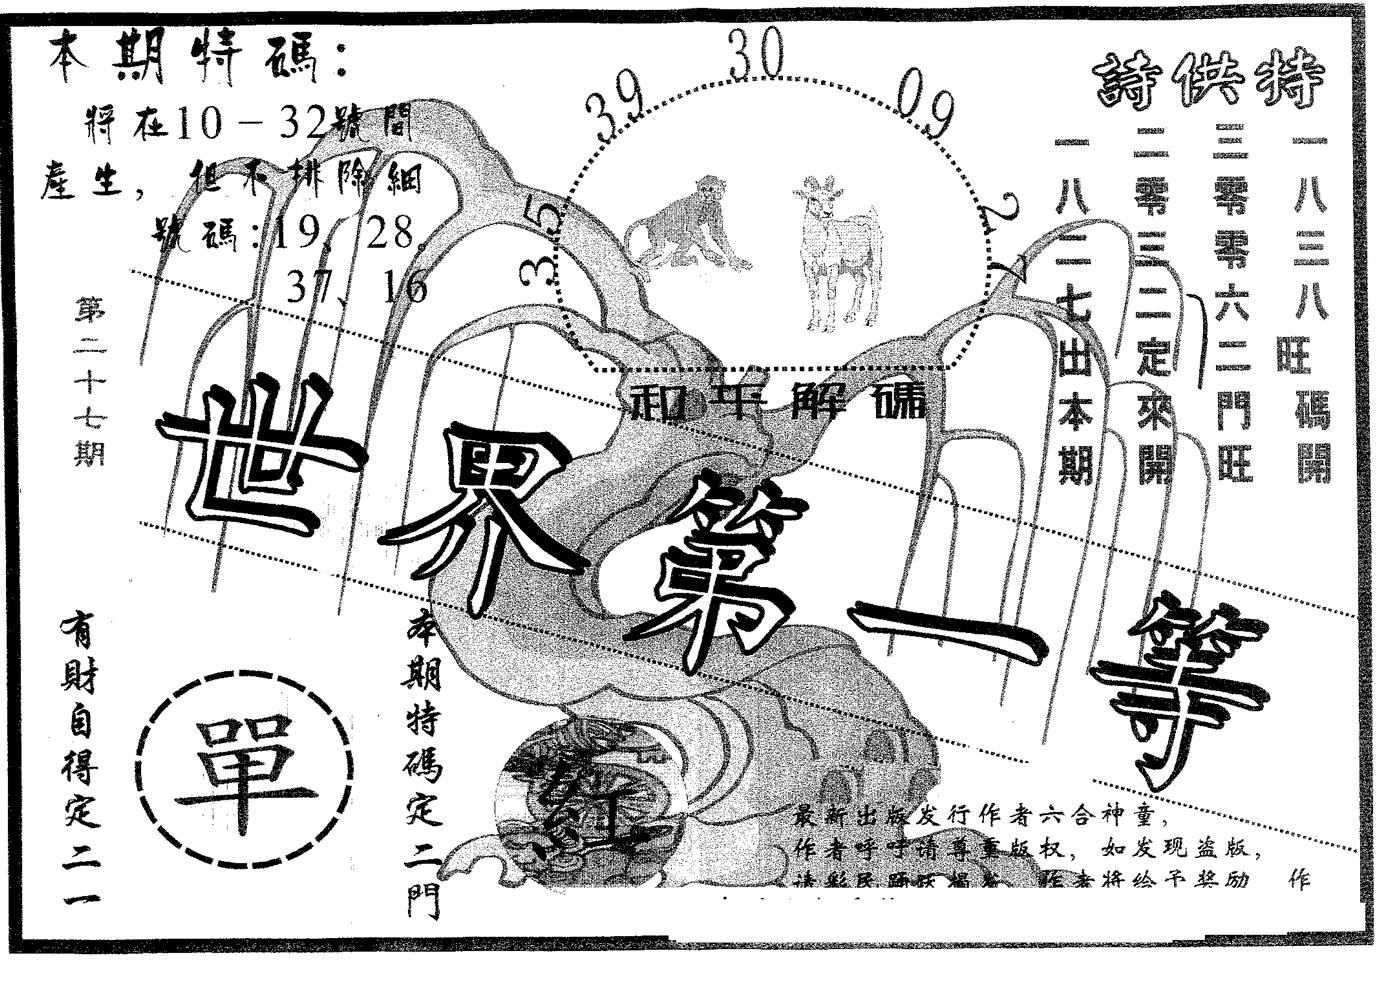 本期特碼：
將在10－32號間
產生，但不排除細
號碼：19、28。
37、16
第二十七期
39
30
09
35
27
和平解碼
詩供特
一八三八旺碼開
三零零六二門旺
二零三二定來開
一八二七出本期
世界第一等
有財自得定二一
單
本期特碼定二門
紅
最新出版发行作者六合神童，
作者呼吁请尊重版权，如发现盗版，
请彩民踊跃揭发 作者将给予奖励 作